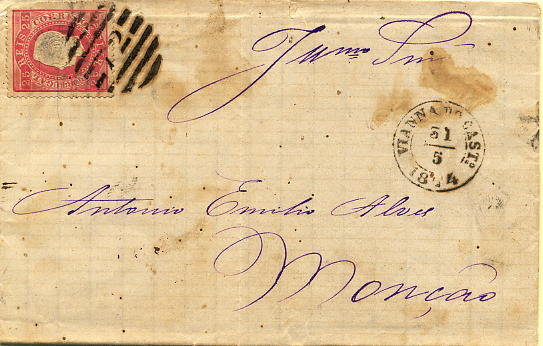 25 REIS 25
CORREIO
Illmo Snr
VIANNA DO CASTO
31
5
1874
Antonio Emilio Alves
Monção